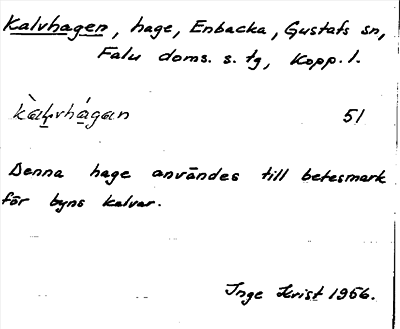 Kalvhagen, hage, Enbacka, Gustafs sn,
Falu doms. s. tg, Kopp. l.
51
Denna hage användes till betesmark
för byns kalvar.
Inge Krist 1956.